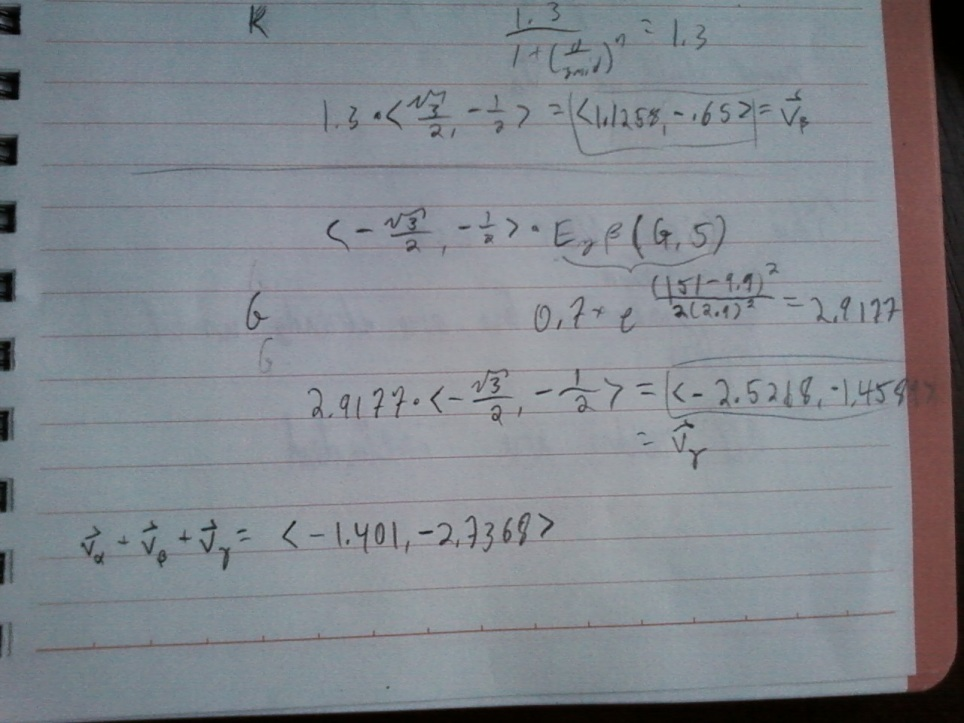 R 1.3 / (1 + (d/zmid)^n) = 1.3
1.3 • <√3/2, -1/2> = <1.1258, -.65> = v⃗_β
<-√3/2, -1/2> • E_γβ(G, 5)
G 0.7 * e^((|5|-9.9)^2 / 2(2.9)^2) = 2.9177
G
2.9177 • <-√3/2, -1/2> = <-2.5268, -1.4589>
= v⃗_γ
v⃗_α + v⃗_β + v⃗_γ = <-1.401, -2.7368>